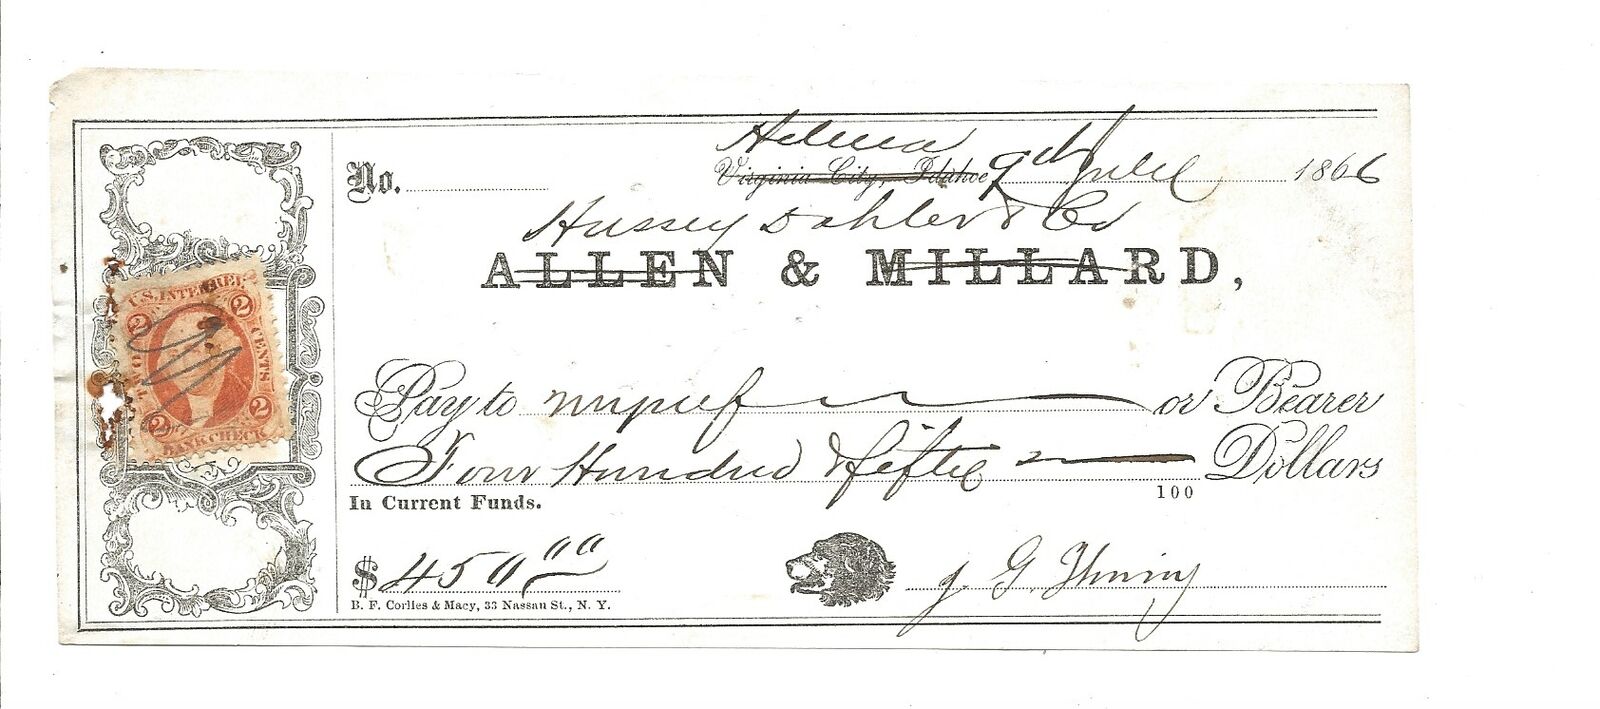 Helena
No. Virginia City, Idaho 9th 1866
Hussey Dahler & Co
ALLEN & MILLARD,
U.S. INTER. REV.
2 2
TWO CENTS
2 2
BANK CHECK
Pay to myself or Bearer
Four Hundred & fiftie Dollars
100
In Current Funds.
$450.00
J. G.
B. F. Corlies & Macy, 33 Nassau St., N. Y.